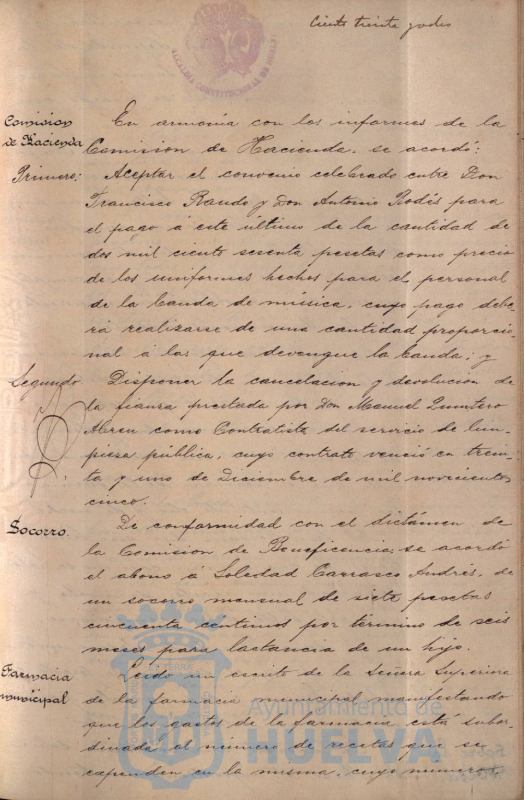 Ciento treinta y dos
ALCALDIA CONSTITUCIONAL DE HUELVA
Comision de Hacienda
En armonía con los informes de la
Comision de Hacienda, se acordó:
Primero:
Aceptar el convenio celebrado entre Don
Francisco Rando y Don Antonio Rodés para
el pago á este último de la cantidad de
dos mil ciento sesenta pesetas como precio
de los uniformes hechos para el personal
de la banda de música, cuyo pago debe-
rá realizarse de una cantidad proporcio-
nal á las que devengue la banda; y
Segundo
Disponer la cancelacion y devolucion de
la fianza prestada por Don Manuel Quintero
Abreu como Contratista del servicio de lim-
pieza pública, cuyo contrato venció en trein-
ta y uno de Diciembre de mil novecientos
cinco.
Socorro.
De conformidad con el dictámen de
la Comision de Beneficencia, se acordó
el abono á Soledad Carrasco Andrés, de
un socorro mensual de siete pesetas
cincuenta céntimos por término de seis
meses para lactancia de un hijo.
Farmacia municipal
Leido un escrito de la Señora Superiora
de la farmacia municipal manifestando
que los gastos de la farmacia está subor-
dinada al número de recetas que se
expenden en la misma, cuyo número
Ayuntamiento de
HUELVA